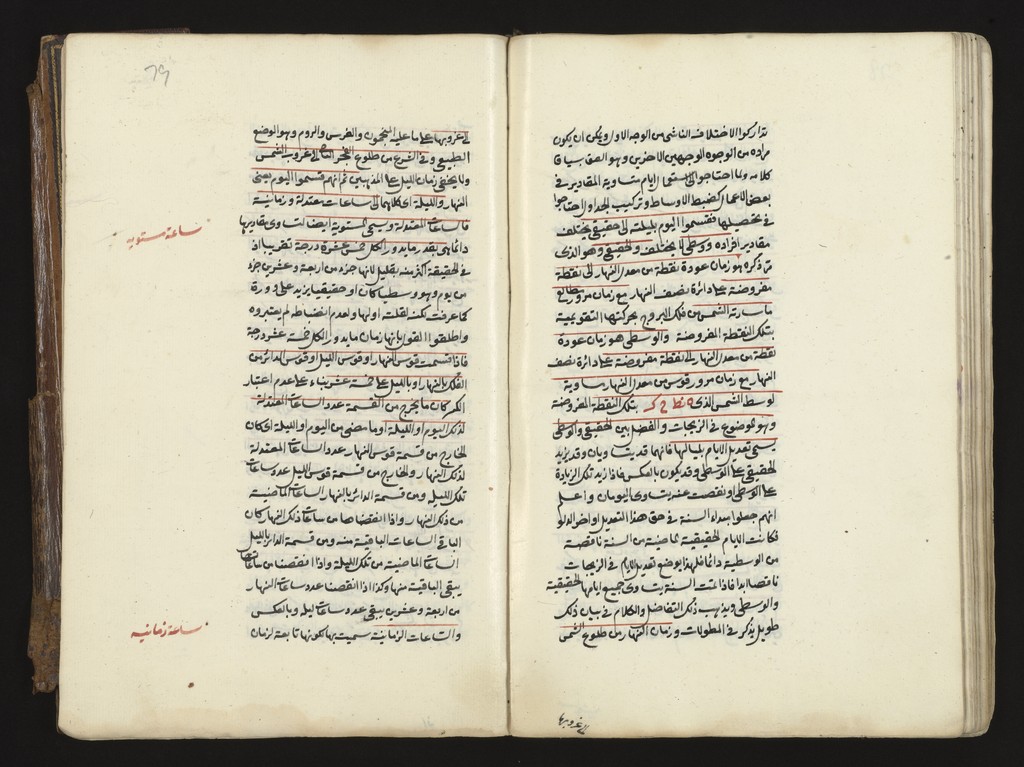 تداركوا الاختلاف الناشئ من الوجه الاول ويمكن ان يكون
مراده من الوجوه الوجهين الاخرين وهو الصق بسياق
كلامه ولما احتاجوا الى ايام متساوية المقادير في
بعض الاعمال كضبط الاوساط وتركيب الجداول احتاجوا
في تحصيلها فقسموا اليوم بليلته الى حقيقي يختلف
مقادير افراده ووسطي لا يختلف والحقيقي وهو الذي
مر ذكره هو زمان عودة نقطة من معدل النهار الى نقطة
مفروضة على دائرة نصف النهار مع زمان مرور مطالع
ما سارته الشمس من فلك البروج بحركتها التقويمية
بتلك النقطة المفروضة والوسطي هو زمان عودة
نقطة من معدل النهار الى نقطة مفروضة على دائرة نصف
النهار مع زمان مرور قوس من معدل النهار مساوية
لوسط الشمس الذي ه نط ح ك بتلك النقطة المفروضة
وهو الموضوع في الزيجات والفضل بين الحقيقي والوسطي
يسمى تعديل الايام بلياليها فانهما قد يتساويان وقد يزيد
الحقيقي على الوسطي وقد يكون بالعكس فاذا زيد تلك الزيادة
على الوسطي او نقصت عنه يتساوى اليومان واعلم
انهم جعلوا مبداء السنة في حق هذا التعديل اواخر الدلو
فكانت الايام الحقيقية الماضية من السنة ناقصة
من الوسطية دائما فلهذا يوضع تعديل الايام في الزيجات
ناقصا ابدا فاذا تمت السنة يتساوى جميع ايامها الحقيقية
والوسطى ويذهب ذلك التفاضل والكلام في بيان ذلك
طويل يذكر في المطولات وزمان النهار من طلوع الشمس
الى غروبها
79
الى غروبها على ما عليه المنجمون والفرس والروم وهو الوضع
الطبيعي وفي الشرع من طلوع الفجر الثاني الى غروب الشمس
ولا يخفى زمان الليل على المذهبين ثم انهم قسموا اليوم يعنى
النهار والليلة اى كلاهما الى ساعات معتدلة وزمانية
فالساعات المعتدلة ويسمى المستوية ايضا لتساوى مقاديرها
دائما هي بقدر ما يدور الكل خمس عشرة درجة تقريبا اذ
في الحقيقة اكثر منه بقليل لانها جزء من اربعة وعشرين جزء
من يوم وهو وسطيا كان او حقيقيا يزيد على دورة
كما عرفت لكنه لقلته اولها ولعدم انضباطه لم يعتبروه
واطلقوا القول بانها زمان ما يدور الكل خمسة عشر درجة
فاذا قسمت قوس النهار او قوس الليل او قوس الدائر من
الفلك بالنهار او بالليل على خمسة عشر بناء على عدم اعتبار
الكسر كان ما يخرج من القسمة عدد الساعات المعتدلة
لذلك اليوم او الليلة او ما مضى من اليوم او الليلة اى كان
الخارج من قسمة قوس النهار عدد الساعات المعتدلة
لذلك النهار والخارج من قسمة قوس الليل عدد ساعات
تلك الليل ومن قسمة الدائر بالنهار الساعات الماضية
من ذلك النهار واذا انقضناها من ساعات ذلك النهار كان
الباقي الساعات الباقية منه ومن قسمة الدائر بالليل
الساعات الماضية من تلك الليلة واذا انقضنا من ساعاتها
يبقى الباقية منها وكذا اذا انقصنا عدد ساعات النهار
من اربعة وعشرين يبقى عدد ساعات ليله وبالعكس
والساعات الزمانية سميت بها لكونها تابعة لزمان
ساعة مستويه
ساعة زمانيه